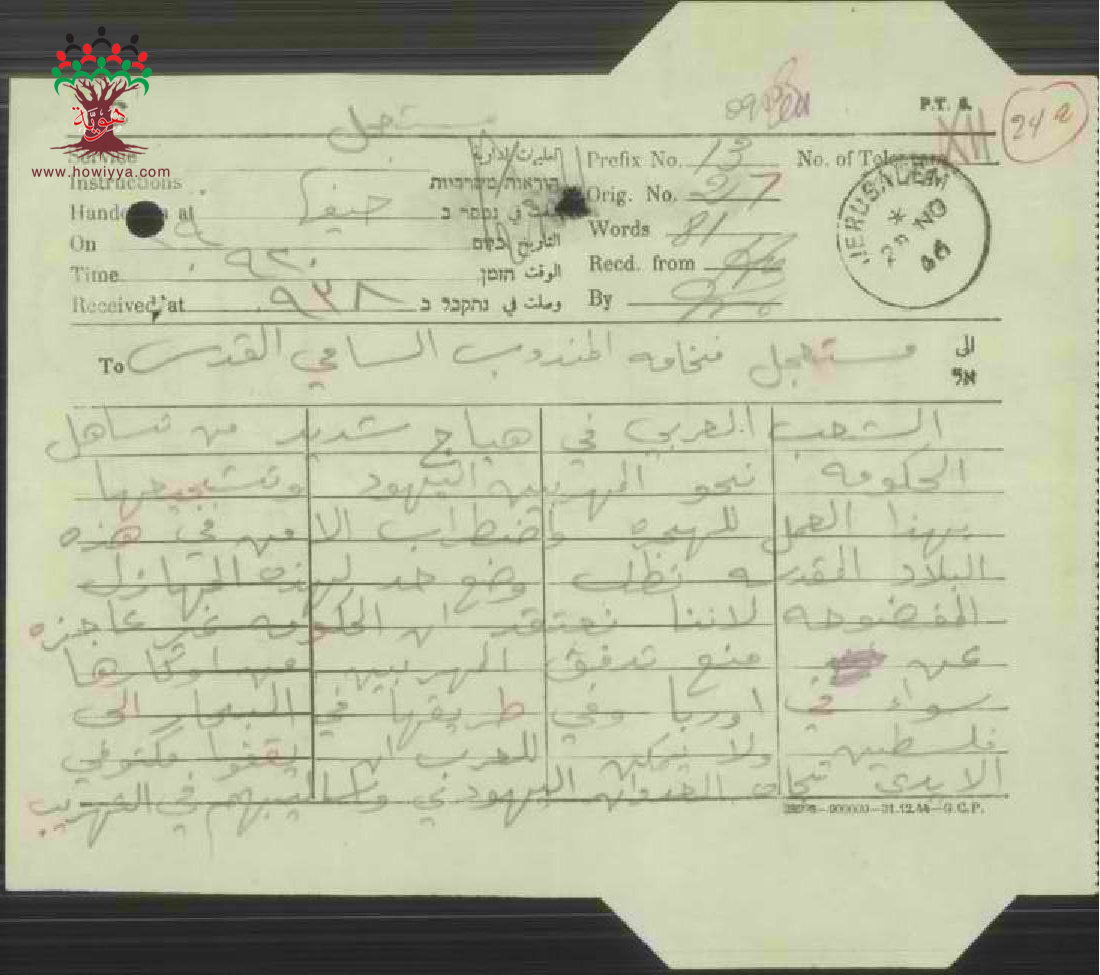 هوية
www.howiyya.com
مستعجل
P.T. 8.
XII
24 a
Service
Instructions
תעודות/משרדיות
Prefix No. 13 No. of Telegram
Handed in at حيفا في נמסר ב
Orig. No. 27
On التاريخ ביום
Words 81
Time ٩٢٠ الوقت הזמן
Recd. from
Received at ٩٣٨ وصلت في נתקבל ב
By
JERUSALEM
29 NO
46
To مستعجل فخامه المندوب السامي القدس الى אל
الشعب العربي في هياج شديد من تساهل
الحكومه نحو المهربين اليهود وتشجيعها
بهذا العمل للهجره واضطراب الامن في هذه
البلاد المقدسه نطلب وضع حد لهذه المهازل
المفضوحه لاننا نعتقد ان الحكومه غير عاجزه
عن منع تدفق المهربين من اوكارها
سواء في اوربا وفي طريقها في البحار الى
فلسطين ولا يمكن للعرب ان يقفوا مكتوفي
الايدي تجاه العدوان اليهودي واساليبهم في التهريب
900000—31.12.44—G.C.P.